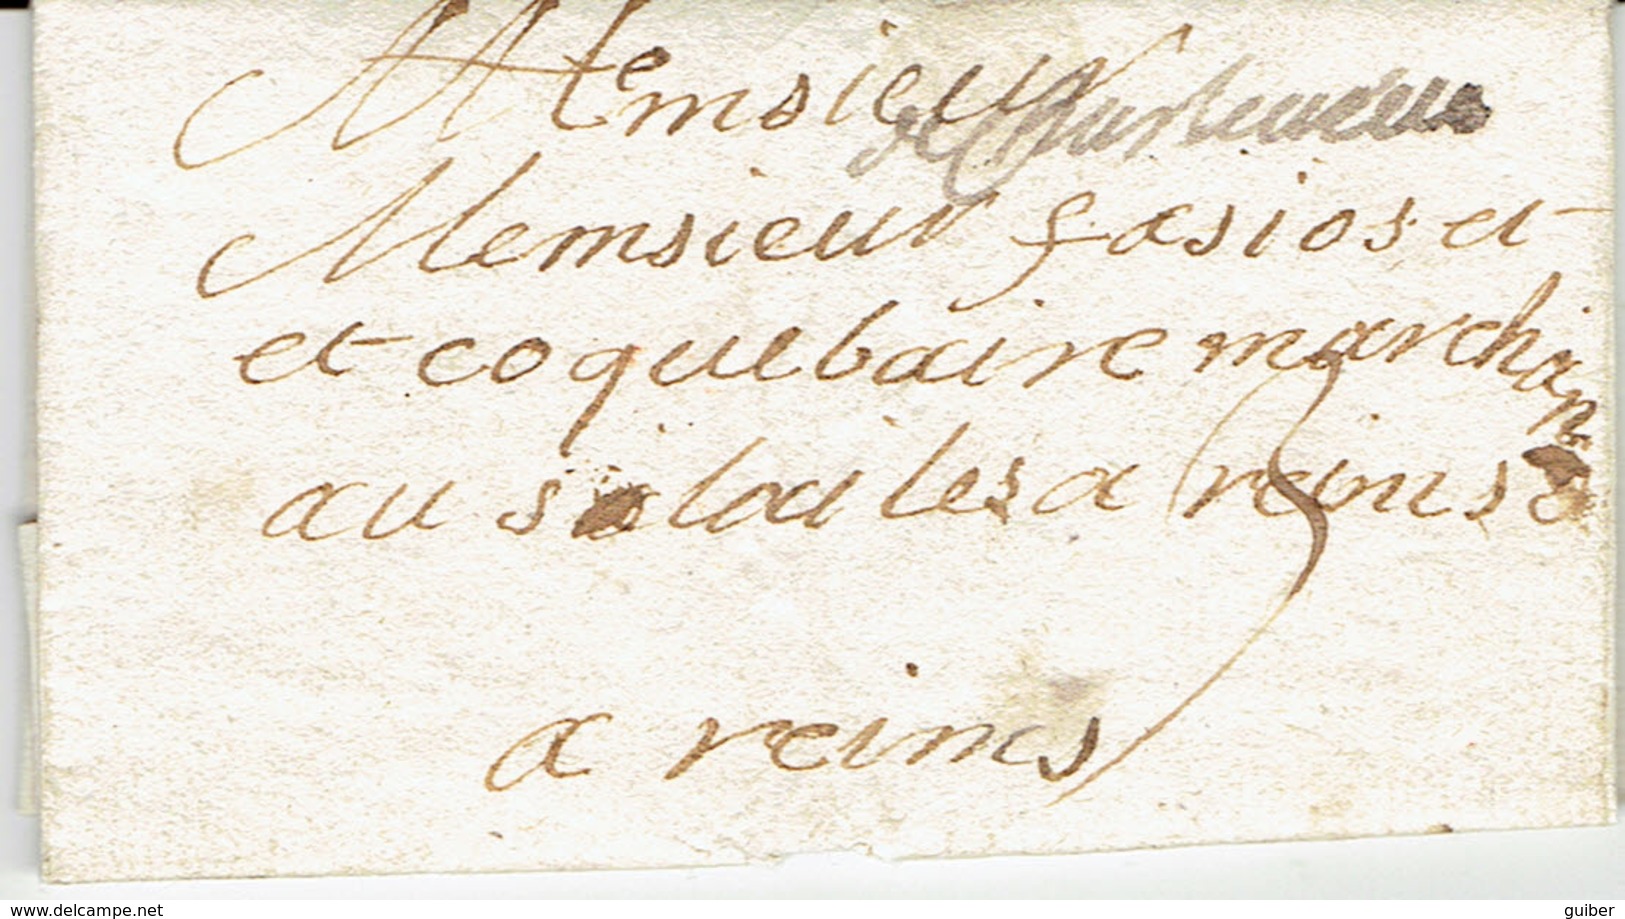 Memsieur
de Charleville
Memsieur fasios et
et coquebaire marchan
au loailes a reims
a reims
www.delcampe.net
guiber